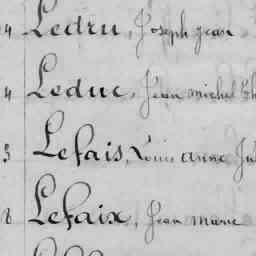 4 Ledru, Joseph Jean
4 Leduc, Jean michel
3 Lefais, Louis anne
8 Lefaix, Jean marie